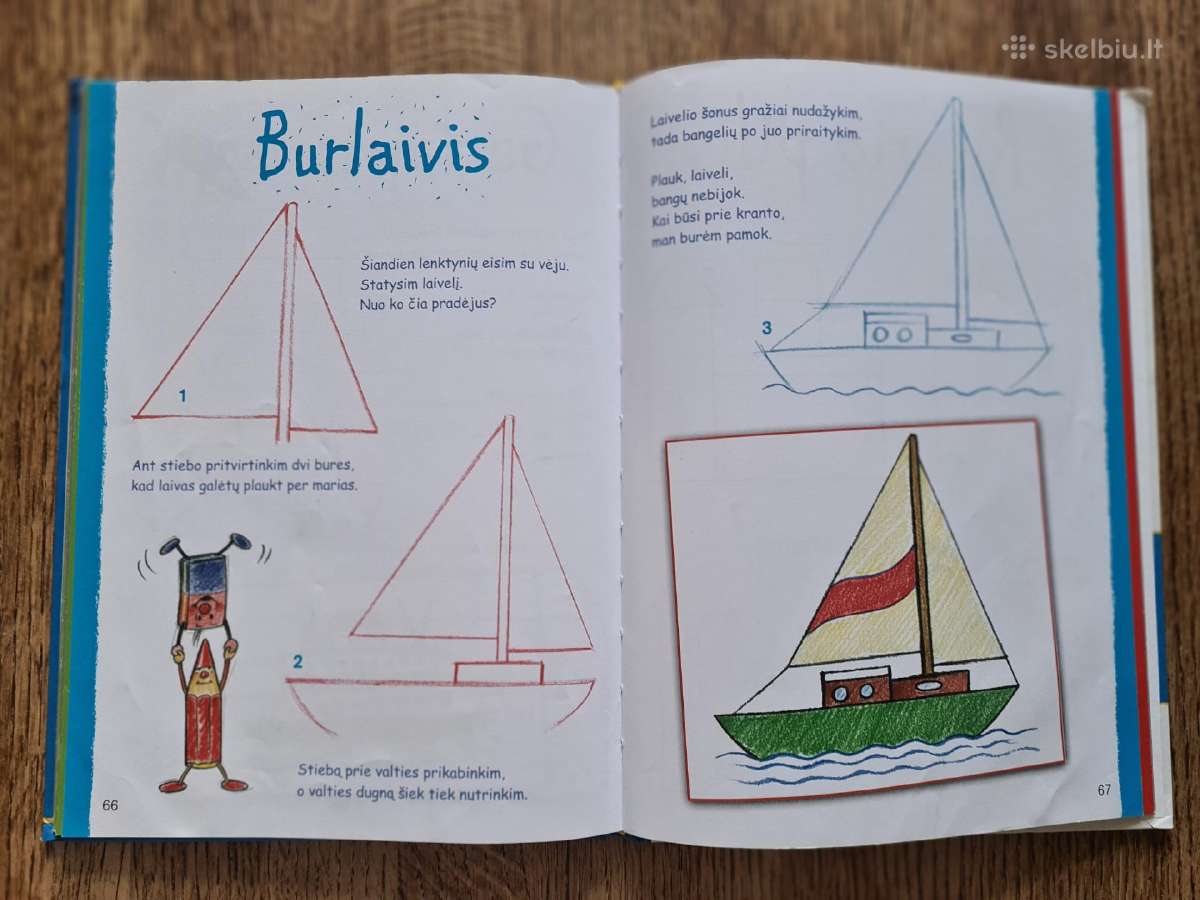 skelbiu.lt
Burlaivis
Šiandien lenktynių eisim su vėju.
Statysim laivelį.
Nuo ko čia pradėjus?
1
Ant stiebo pritvirtinkim dvi bures,
kad laivas galėtų plaukt per marias.
2
Stiebą prie valties prikabinkim,
o valties dugną šiek tiek nutrinkim.
66
Laivelio šonus gražiai nudažykim,
tada bangelių po juo priraitykim.
Plauk, laiveli,
bangų nebijok.
Kai būsi prie kranto,
man burėm pamok.
3
67